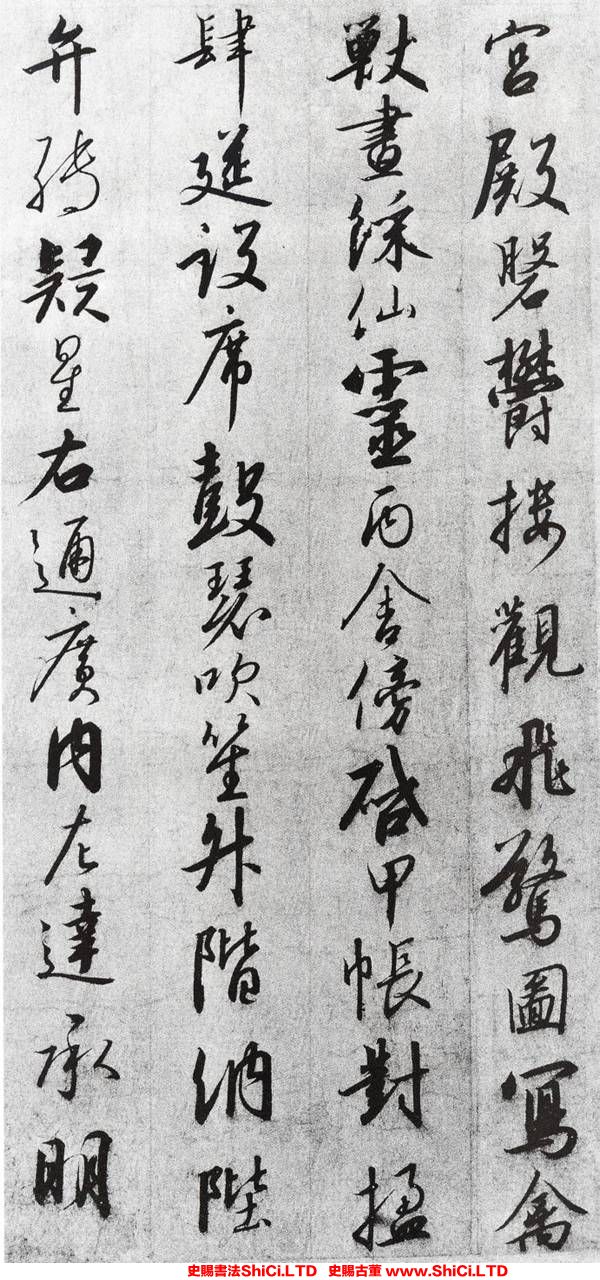 宮殿磐鬱樓觀飛驚圖寫禽
獸畫綵仙靈丙舍傍啓甲帳對楹
肆筵設席鼓瑟吹笙升階納陛
弁轉疑星右通廣內左達承明
史賜書法ShiCi.LTD 史賜古董 www.ShiCi.LTD